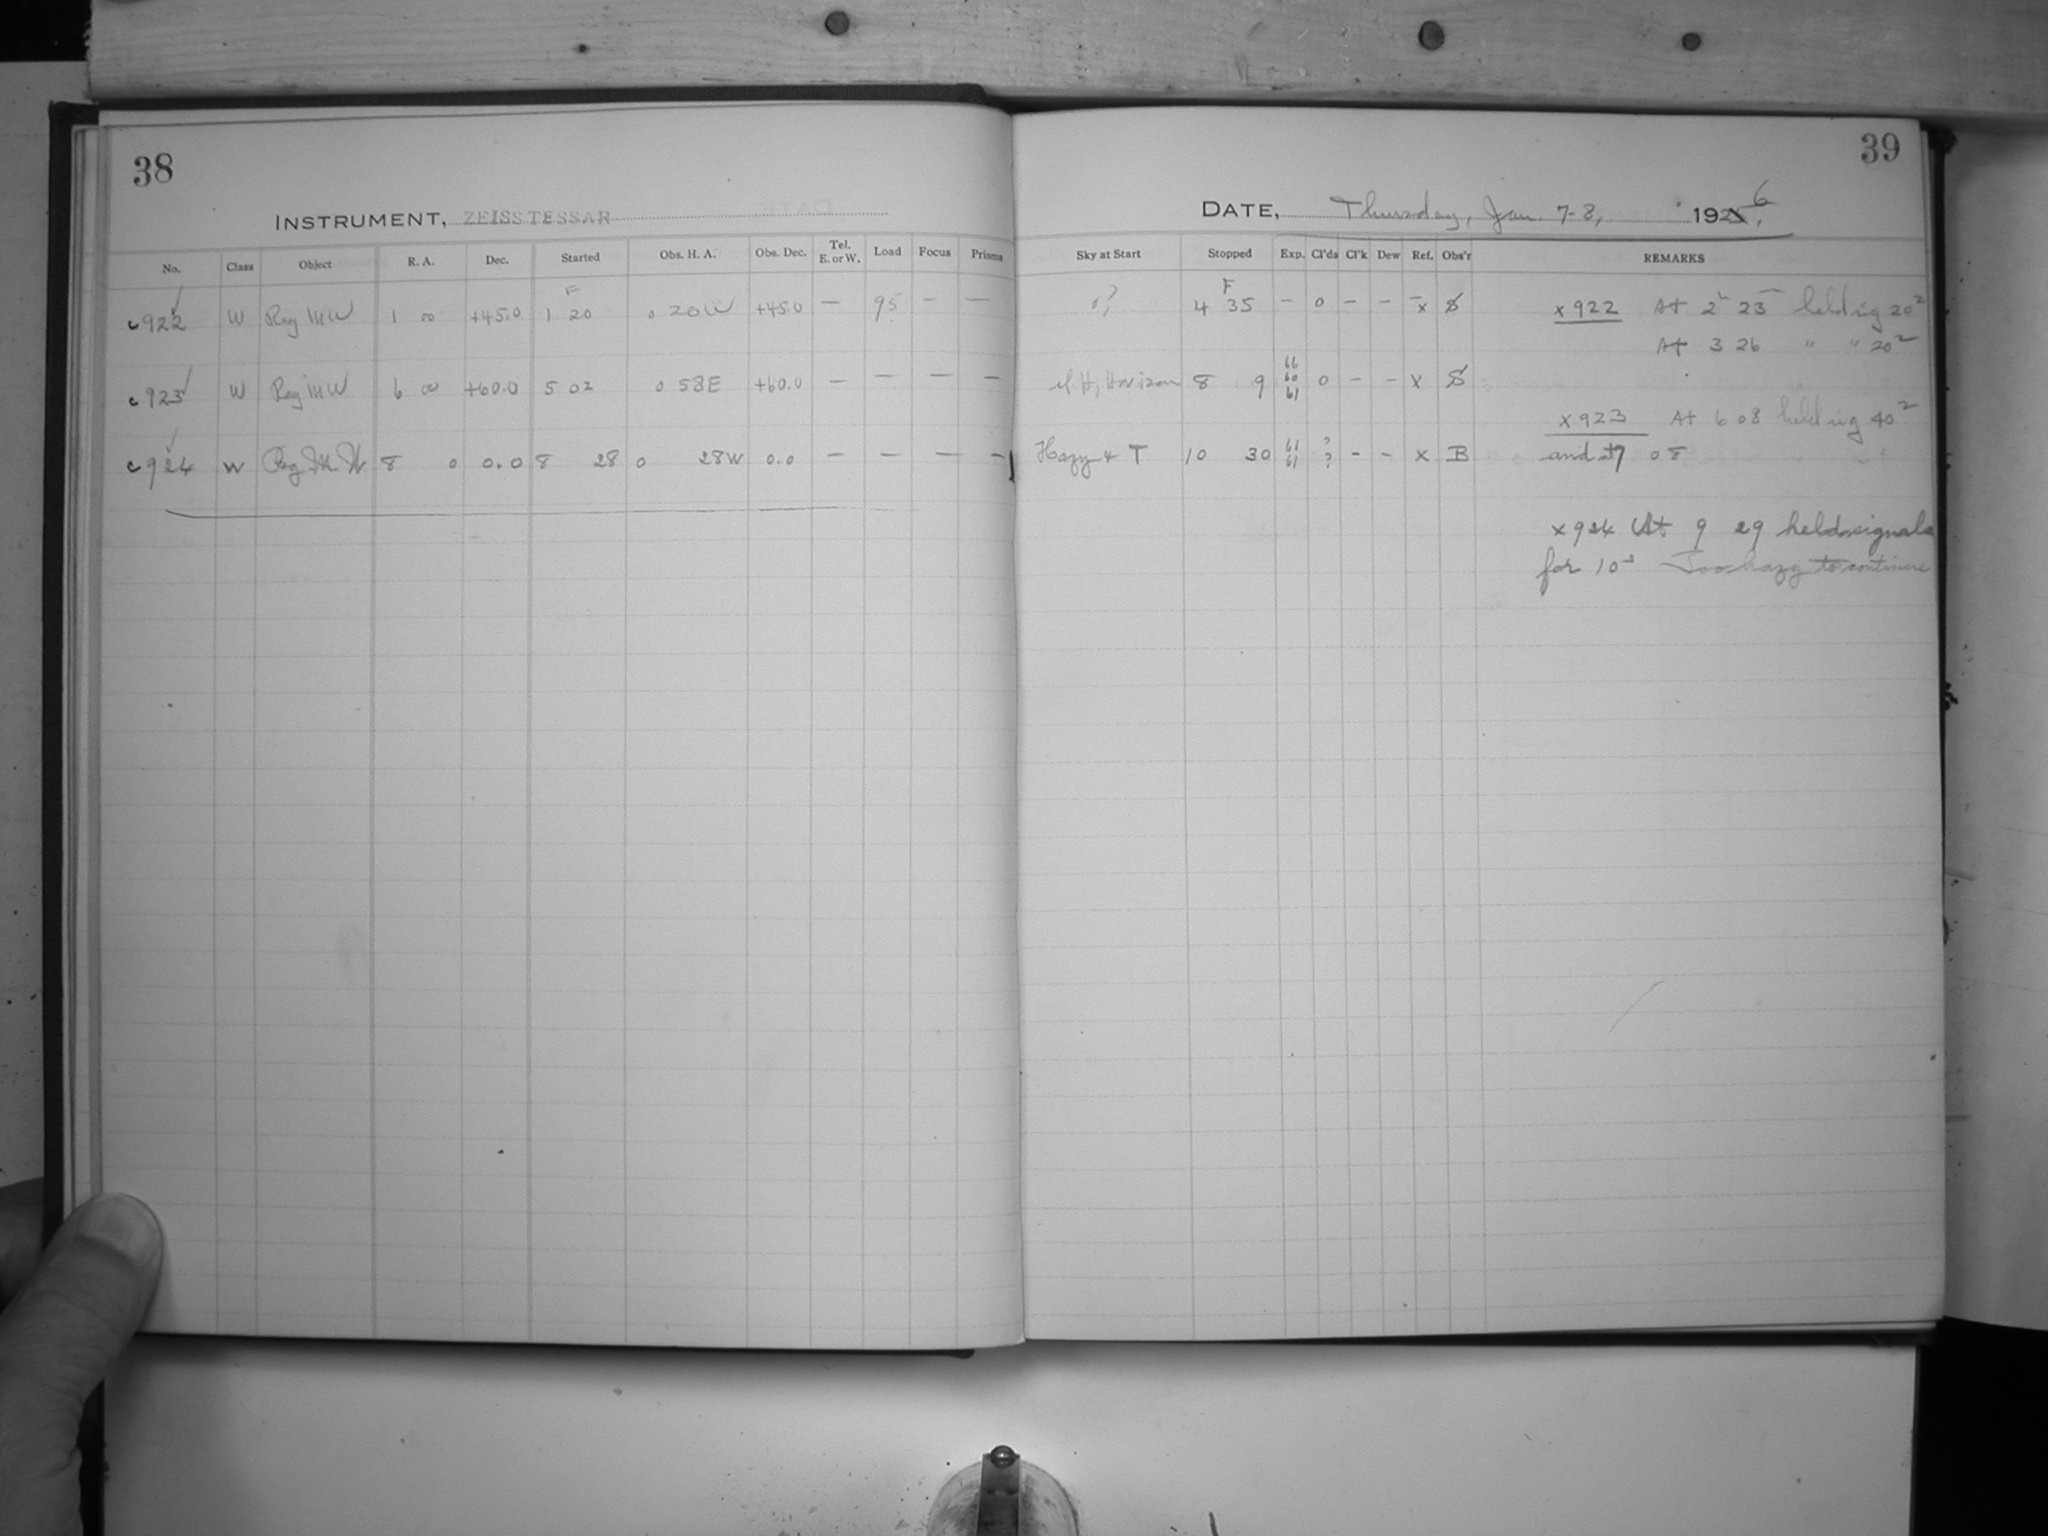 38
INSTRUMENT, ZEISS TESSAR
No. Class Object R. A. Dec. Started Obs. H. A. Obs. Dec. Tel. E. or W. Load Focus Prisms
F
c922 W Reg MW 1 00 +45.0 1 20 0 20W +45.0 — 95 — —
c923 W Reg MW 6 00 +60.0 5 02 0 58E +60.0 — — — —
c924 W Reg M.W. 8 0 0.0 8 28 0 28W 0.0 — — — —
39
DATE, Thursday, Jan. 7-8, 1926.
Sky at Start Stopped Exp. Cl'ds Cl'k Dew Ref. Obs'r REMARKS
F
4 35 — 0 — — x S x922 At 2 23 held sig 20
At 3 26 " " 20
H, Horizon 8 9 66 60 61 0 — — x S
x923 At 6 08 held sig 40
Hazy & T 10 30 61 61 ? ? - - x B and at 7 08
x924 At 9 29 held signals
for 10s Too hazy to continue